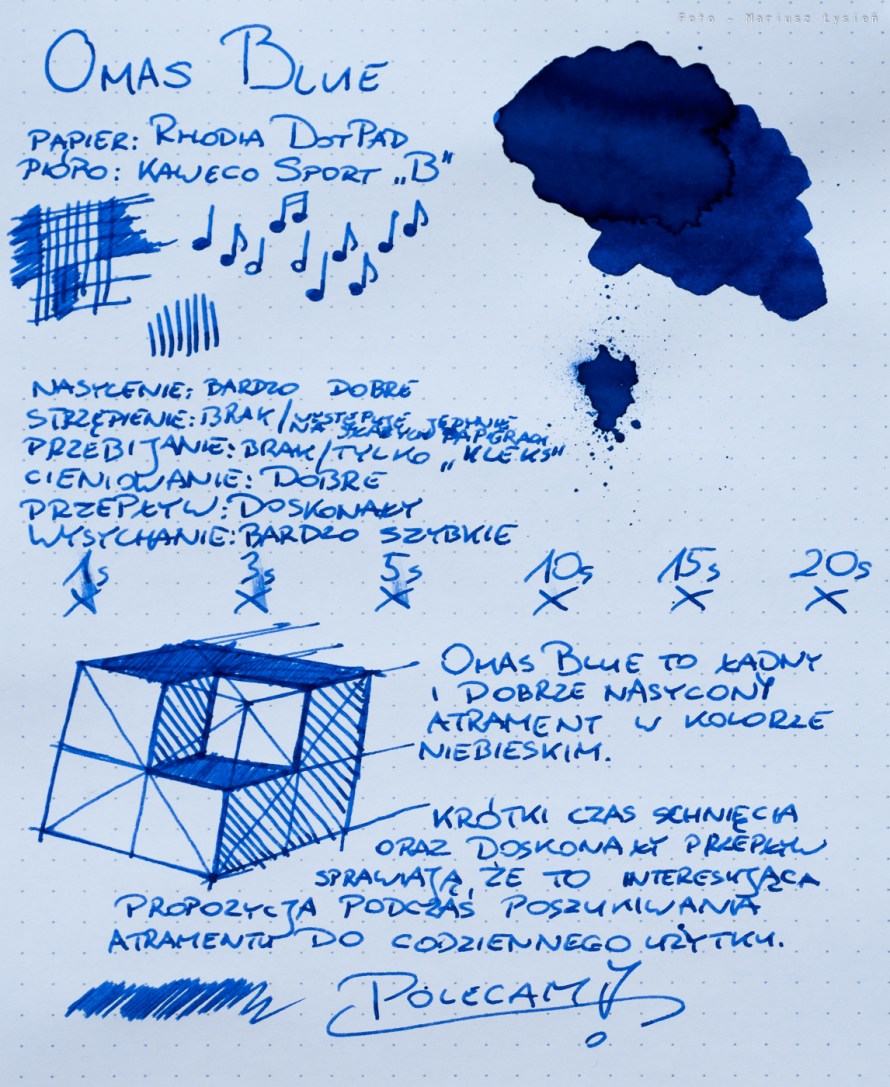 Foto - Mariusz Łysień
OMAS BLUE
PAPIER: RHODIA DOTPAD
PIÓRO: KAWECO SPORT „B"
NASYCENIE: BARDZO DOBRE
STRZĘPIENIE: BRAK / WYSTĘPUJE JEDYNIE
NA SŁABYCH PAPIERACH
PRZEBIJANIE: BRAK / TYLKO „KLEKS"
CIENIOWANIE: DOBRE
PRZEPŁYW: DOSKONAŁY
WYSYCHANIE: BARDZO SZYBKIE
1s 3s 5s 10s 15s 20s
OMAS BLUE TO ŁADNY
I DOBRZE NASYCONY
ATRAMENT W KOLORZE
NIEBIESKIM.
KRÓTKI CZAS SCHNIĘCIA
ORAZ DOSKONAŁY PRZEPŁYW
SPRAWIAJĄ, ŻE TO INTERESUJĄCA
PROPOZYCJA PODCZAS POSZUKIWANIA
ATRAMENTU DO CODZIENNEGO UŻYTKU.
POLECAMY!